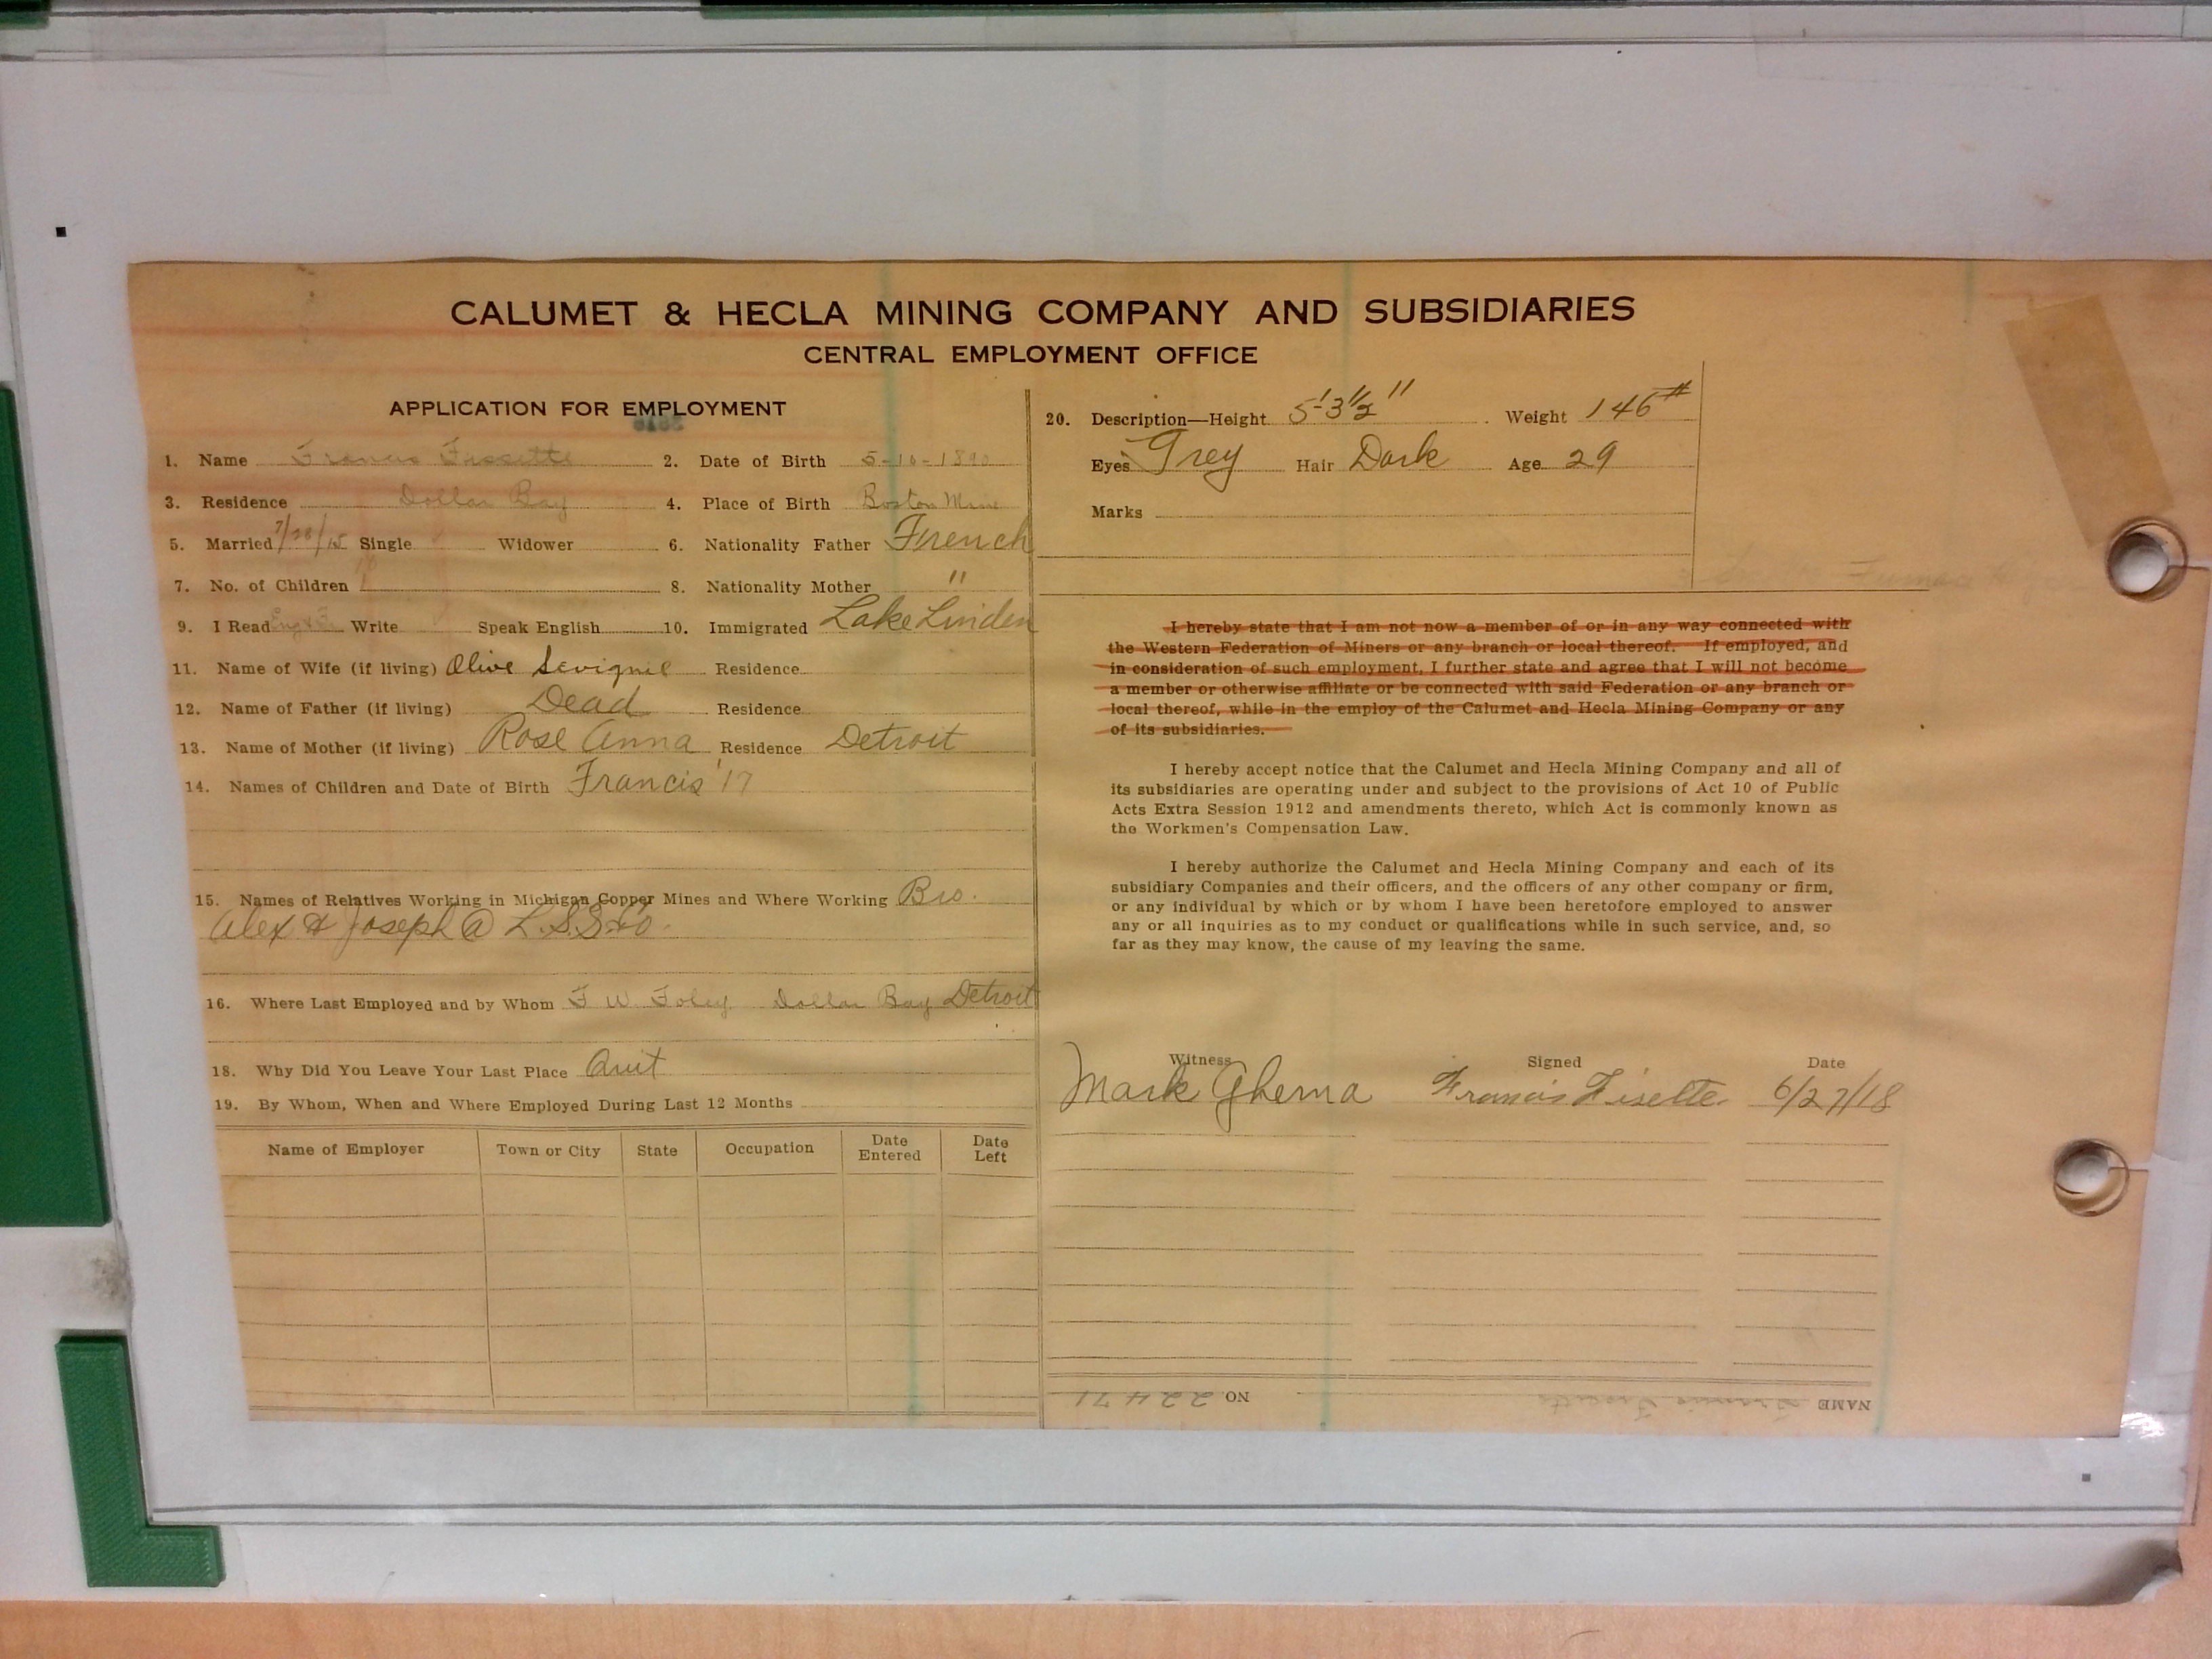 CALUMET & HECLA MINING COMPANY AND SUBSIDIARIES
CENTRAL EMPLOYMENT OFFICE
APPLICATION FOR EMPLOYMENT
1. Name Francis 2. Date of Birth
3. Residence Dollar Bay 4. Place of Birth Boston Mine
5. Married 7/28/15 Single Widower 6. Nationality Father French
7. No. of Children 8. Nationality Mother "
9. I Read Write Speak English 10. Immigrated Lake Linden
11. Name of Wife (if living) Olive Residence
12. Name of Father (if living) Dead Residence
13. Name of Mother (if living) Rose Anna Residence Detroit
14. Names of Children and Date of Birth Francis '17
15. Names of Relatives Working in Michigan Copper Mines and Where Working Bro.
Alex & Joseph @ L.S.S.Co.
16. Where Last Employed and by Whom F W Foley Dollar Bay Detroit
18. Why Did You Leave Your Last Place Quit
19. By Whom, When and Where Employed During Last 12 Months
Name of Employer Town or City State Occupation Date Entered Date Left
20. Description—Height 5'-3½" Weight 146#
Eyes Grey Hair Dark Age 29
Marks
I hereby state that I am not now a member of or in any way connected with
the Western Federation of Miners or any branch or local thereof. If employed, and
in consideration of such employment, I further state and agree that I will not become
a member or otherwise affiliate or be connected with said Federation or any branch or
local thereof, while in the employ of the Calumet and Hecla Mining Company or any
of its subsidiaries.
I hereby accept notice that the Calumet and Hecla Mining Company and all of
its subsidiaries are operating under and subject to the provisions of Act 10 of Public
Acts Extra Session 1912 and amendments thereto, which Act is commonly known as
the Workmen's Compensation Law.
I hereby authorize the Calumet and Hecla Mining Company and each of its
subsidiary Companies and their officers, and the officers of any other company or firm,
or any individual by which or by whom I have been heretofore employed to answer
any or all inquiries as to my conduct or qualifications while in such service, and, so
far as they may know, the cause of my leaving the same.
Witness Signed Date
Mark Ghema Francis Fisette 6/27/18
NAME Francis NO. 22471